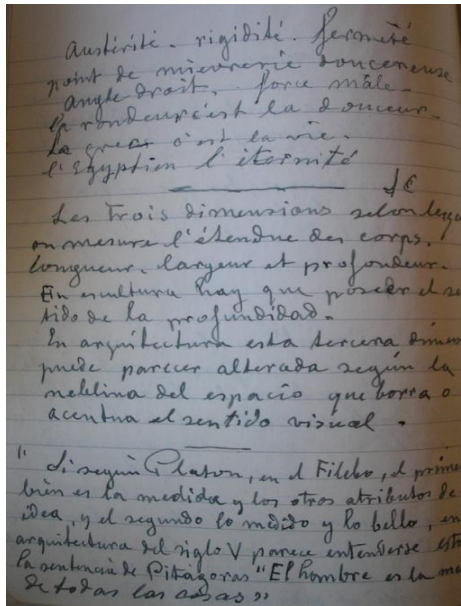 Austérité. rigidité. fermeté
point de mievrerie doucereuse
angle droit. force mâle.
la rondeur c'est la douceur.
la grec c'est la vie.
l'Egyptien l'éternité
Les trois dimensions selon lesqu
on mesure l'étendue des corps.
longueur. largeur et profondeur.
En escultura hay que poseer el se
tido de la profundidad.
En arquitectura esta tercera dimen
puede parecer alterada según la
neblina del espacio que borra o
acentua el sentido visual.
"Si según Platon, en el Filebo, el prime
bien es la medida y los otros atributos de
idea, y el segundo lo medido y lo bello, en
arquitectura del siglo V parece entenderse est
la sentencia de Pitágoras "El hombre es la me
de todas las cosas"